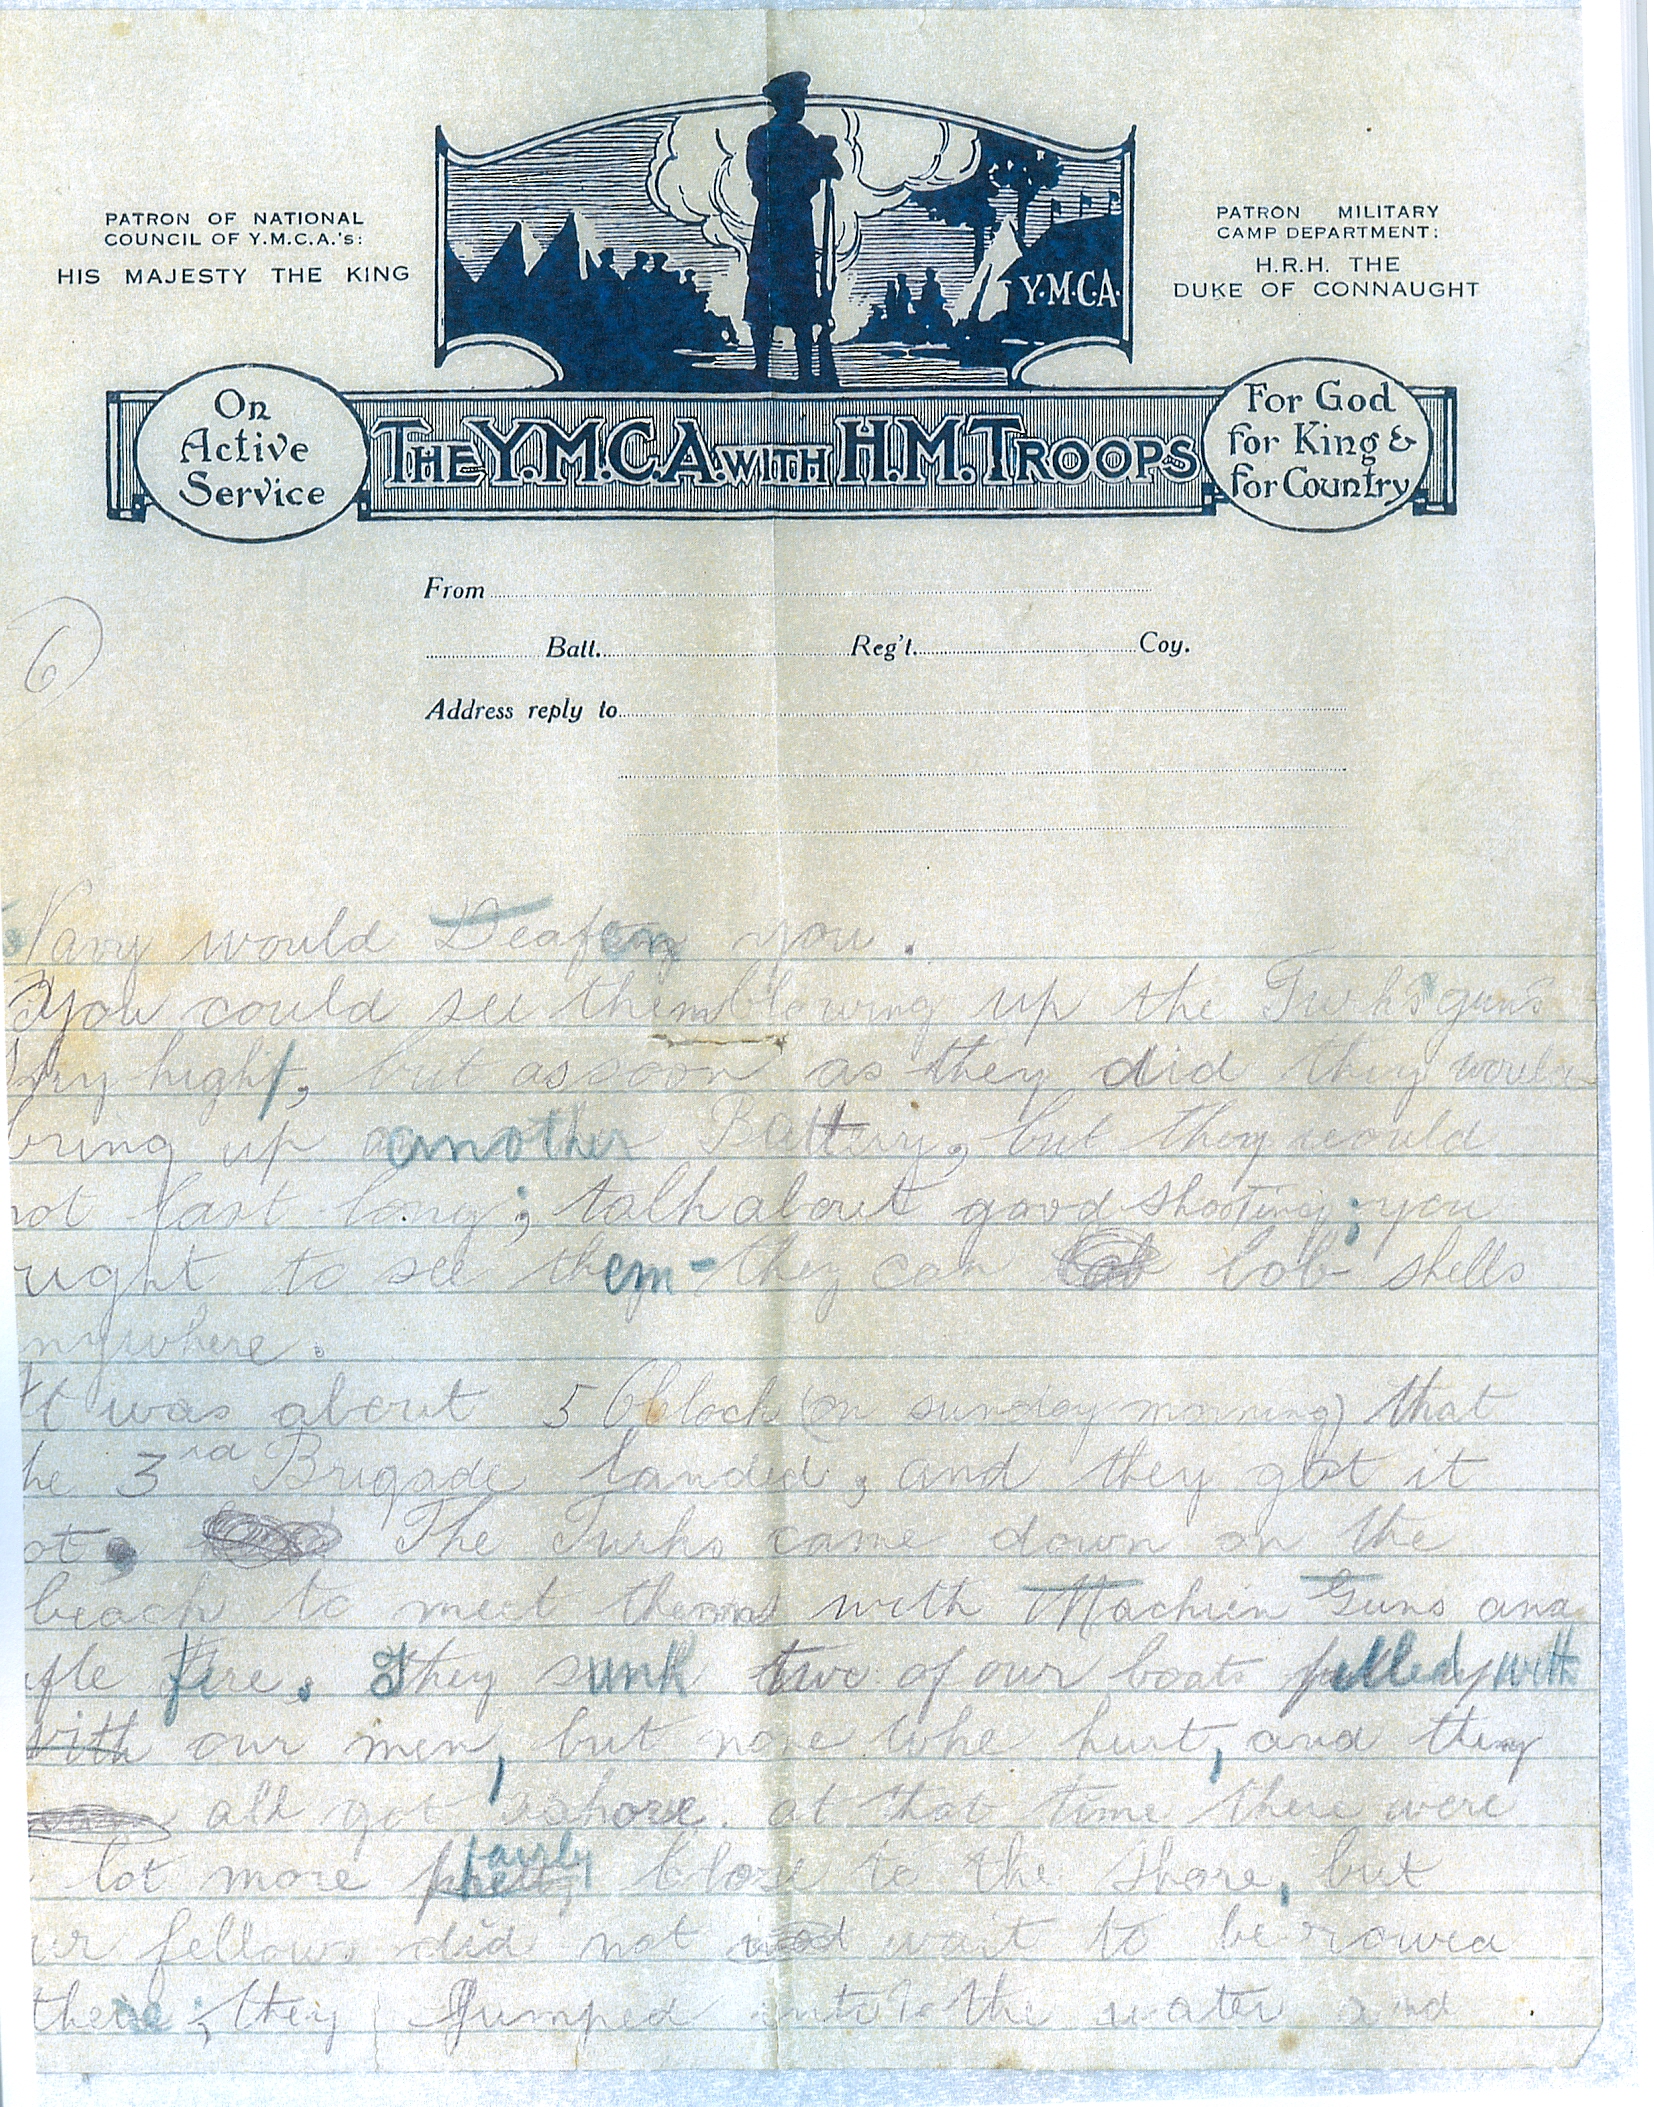 PATRON OF NATIONAL
COUNCIL OF Y.M.C.A.'s:
HIS MAJESTY THE KING
Y.M.C.A.
PATRON MILITARY
CAMP DEPARTMENT:
H.R.H. THE
DUKE OF CONNAUGHT
On
Active
Service
THE Y.M.C.A. WITH H.M. TROOPS
For God
for King &
for Country
From
Batt. Reg't. Coy.
Address reply to
6
Navy would Deafen you.
You could see them blowing up the Turks guns
sky high, but as soon as they did they would
bring up another Battery, but they would
not last long; talk about good shooting; you
ought to see them - they can lob shells
nywhere.
It was about 5 O'Clock (on sunday morning) that
he 3rd Brigade landed, and they got it
ot, The Turks came down on the
beach to meet them with Machien Guns and
ifle fire. They sunk two of our boats filled with
with our men, but none whe hurt, and they
all got ashore. at that time there were
lot more fairly close to the shore, but
ur fellows did not wait to be rowed
there; they Jumped into the water and